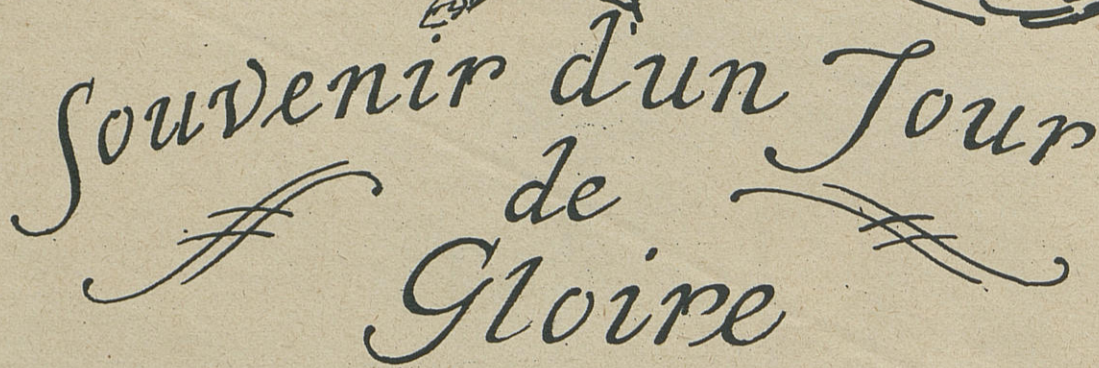 Souvenir d'un Jour
de
Gloire